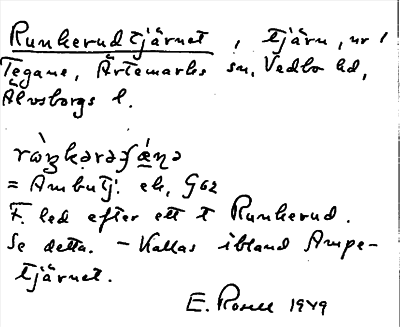 Runkerudtjärnet, tjärn, nr 1
Tegane, Ärtemarks sn, Vedbo hd,
Älvsborgs l.
= Ambutj. ek, G62
F. led efter ett t Runkerud.
Se detta. – Kallas ibland Ampe-
tjärnet.
E. Rosell 1949